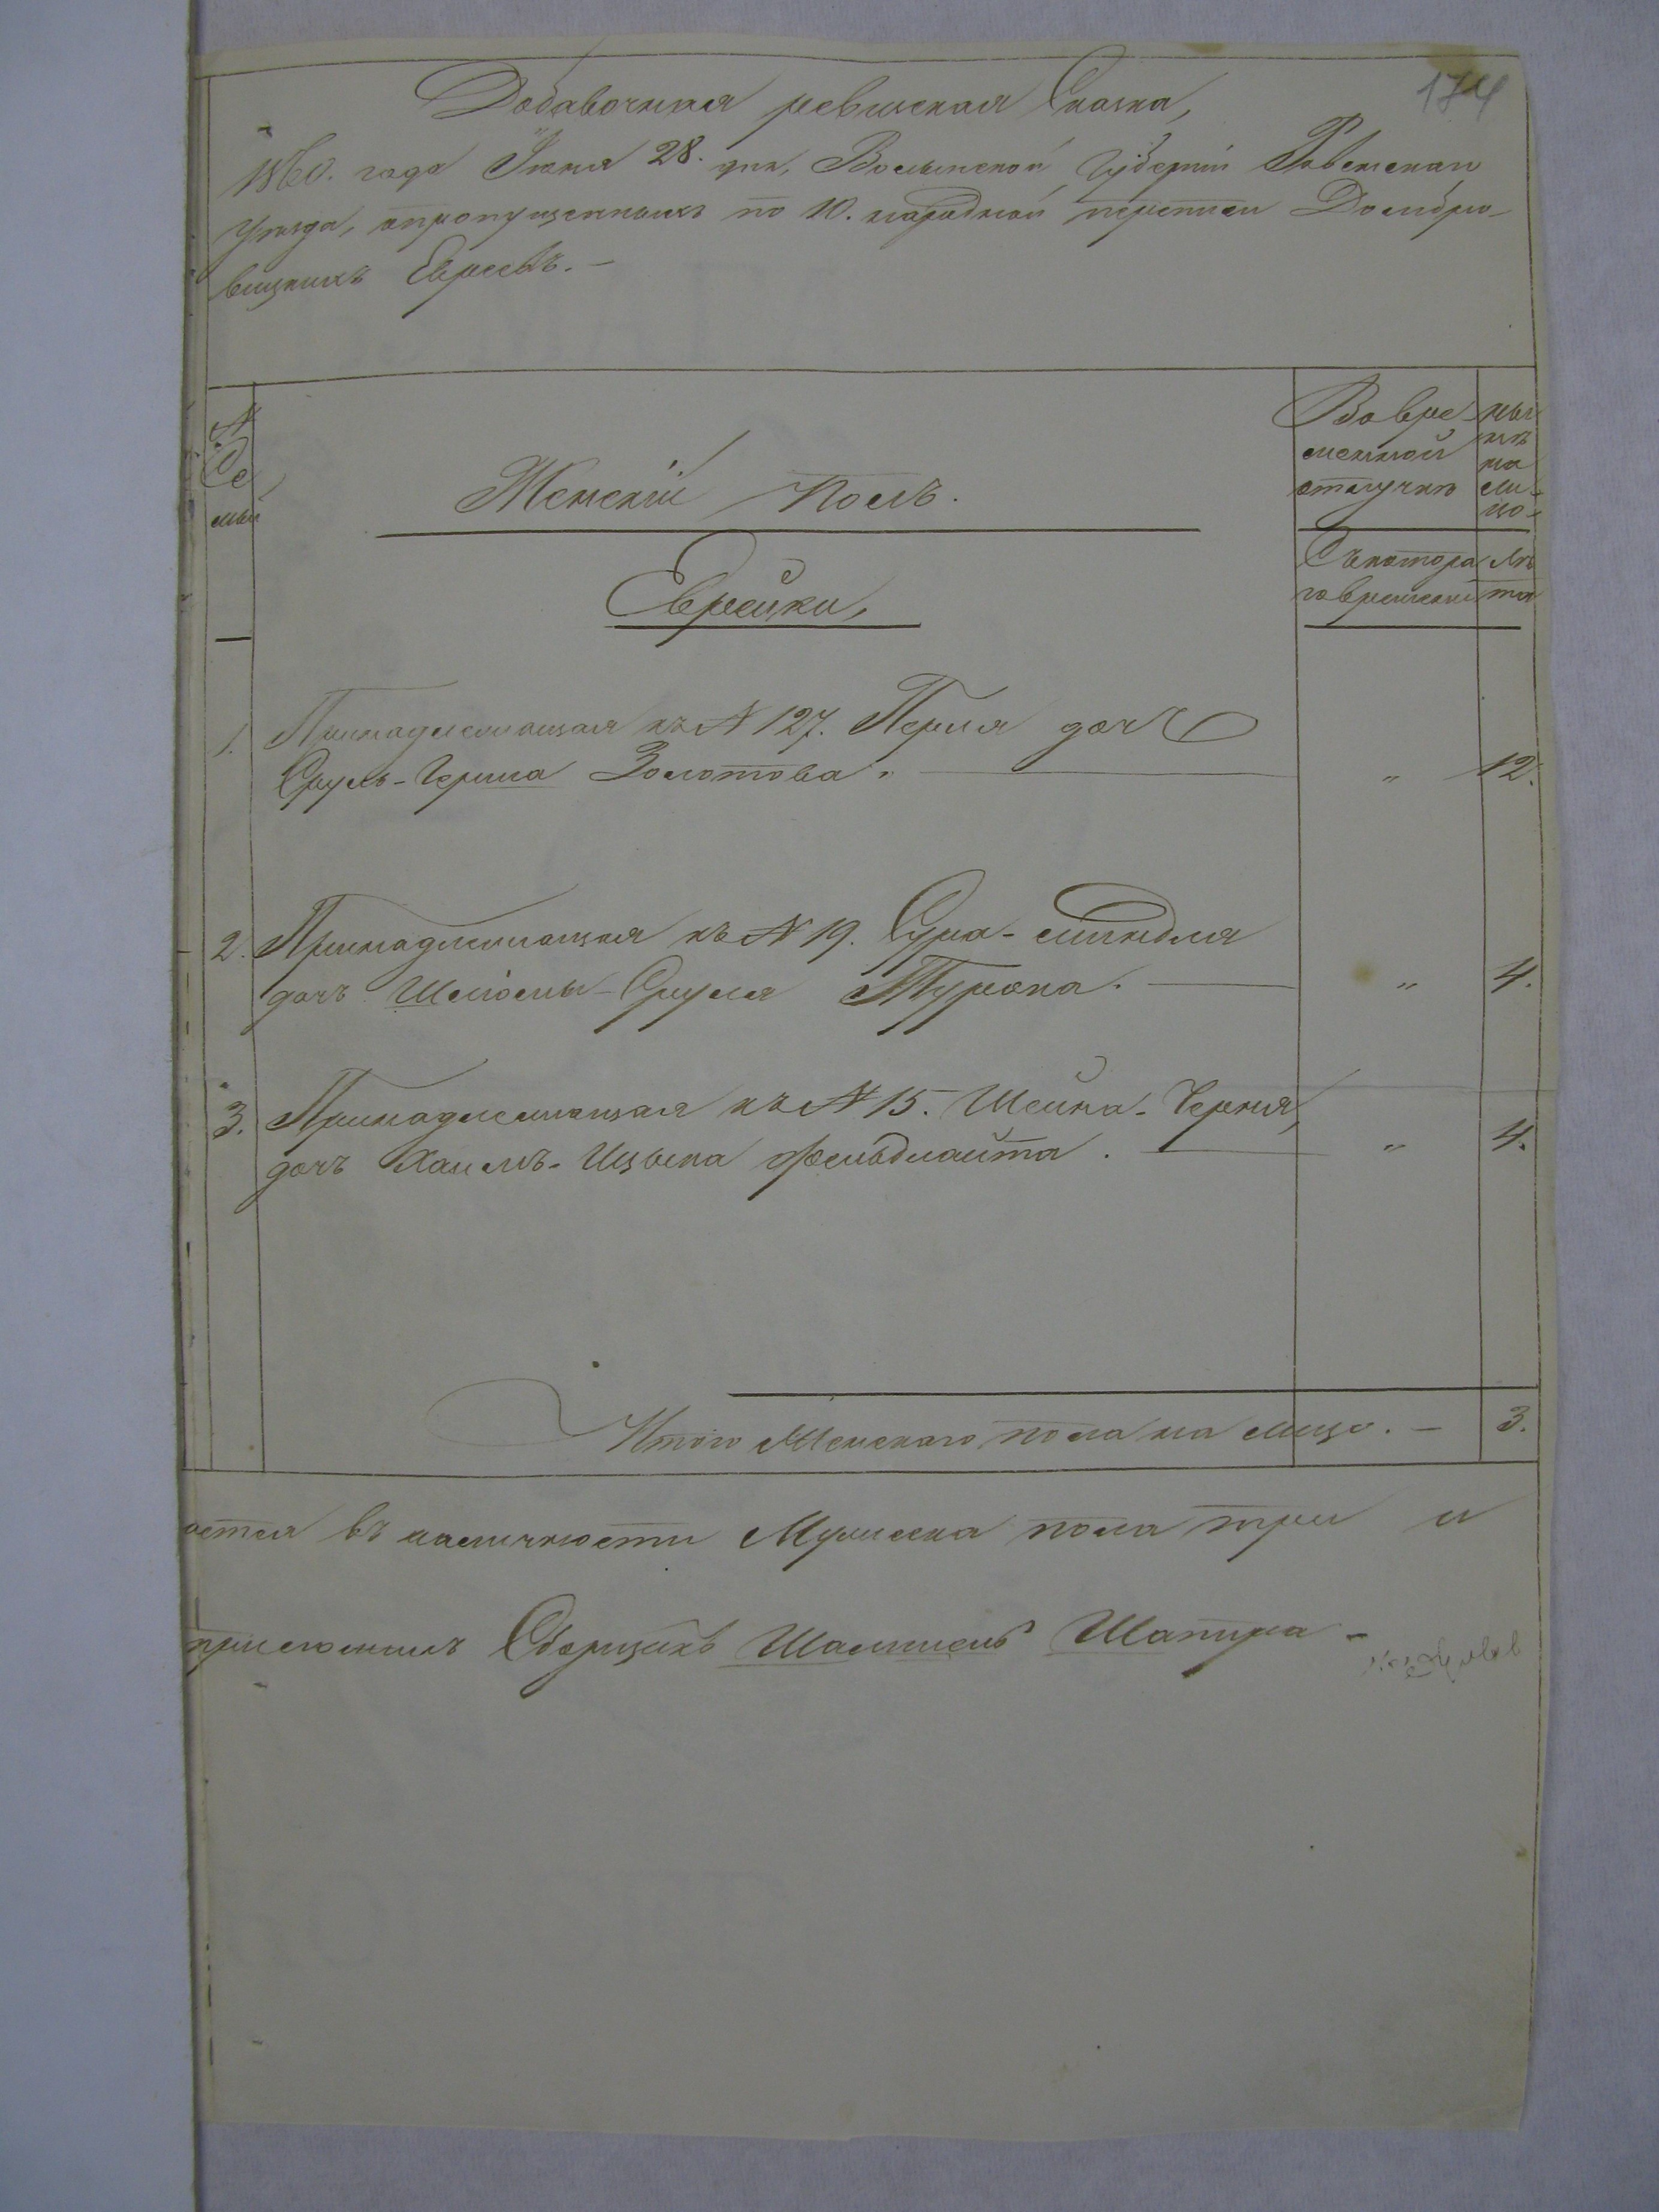 174
Добавочная ревиская Сказка,
1860. года Іюня 28. дня, Волынской Губерніи Ровенскаго
Уезда, опропущенныхъ по 10. народной переписи Домбро-
вицкихъ Евреевъ. —
№
Се
мьи
Женскій полъ.
Во вре-
менной
отлучкѣ
ны
нѣ
на
ли-
цо.
Еврейки,
Съ котора
го времени
Лѣ
та
1. Принадлежащая къ № 127. Перля дочь
Сруль-Герша Золотова. " 12.
2. Принадлежащая къ № 19. Сура-Миндля
дочь Шліомы-Сруля Турока. — " 4.
3. Принадлежащая къ № 15. Шейна-Черня,
дочь Хаимъ-Ицька Фельдмаита. — " 4.
Итого Женскаго пола на лицо. — 3.
ается въ наличности Мужеска пола три и
приложилъ Сборщикъ Шалмисъ Шапира —